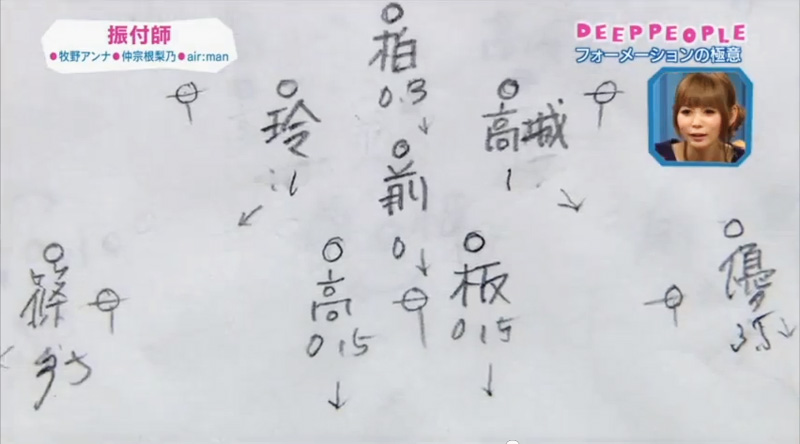 振付師
●牧野アンナ●仲宗根梨乃●air:man
DEEP PEOPLE
フォーメーションの極意
柏
0.3
玲
高城
1
前
0
高
0.15
板
0.15
優
3.5
篠